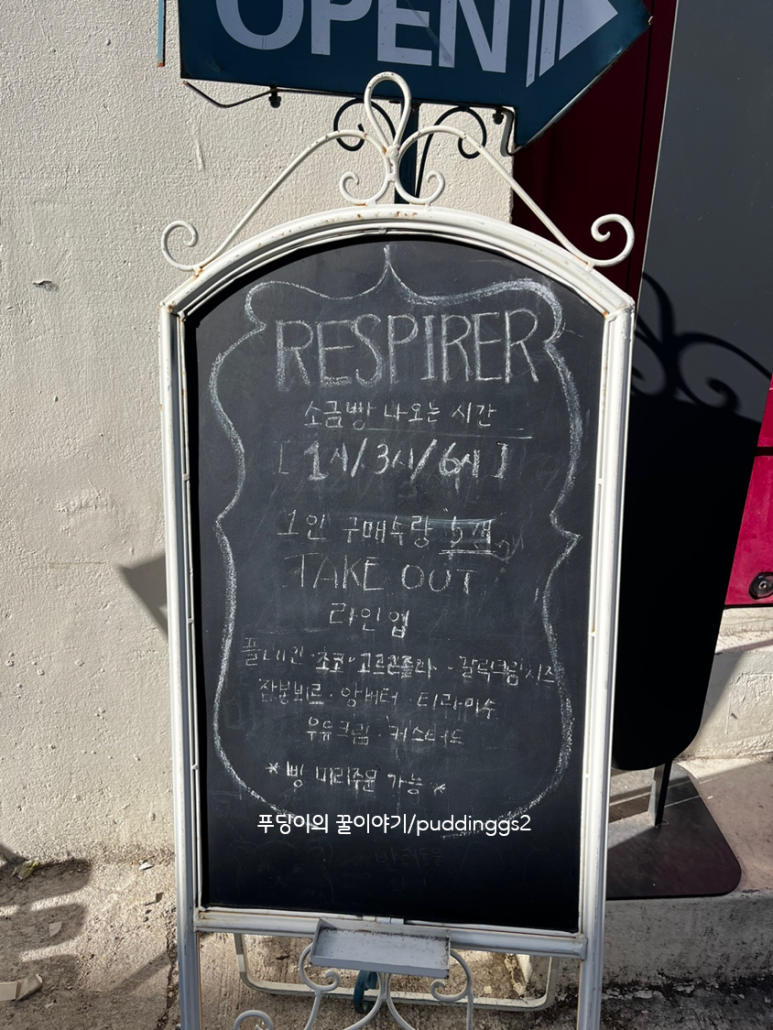 OPEN
RESPIRER
소금빵 나오는 시간
[1시/3시/6시]
1인 구매수량 5개
TAKE OUT
라인업
플레인·초코·고르곤졸라·갈릭크림치즈
잠봉뵈르·앙버터·티라미수
우유크림·커스터드
*빵 미리주문 가능*
푸딩이의 꿀이야기/puddinggs2